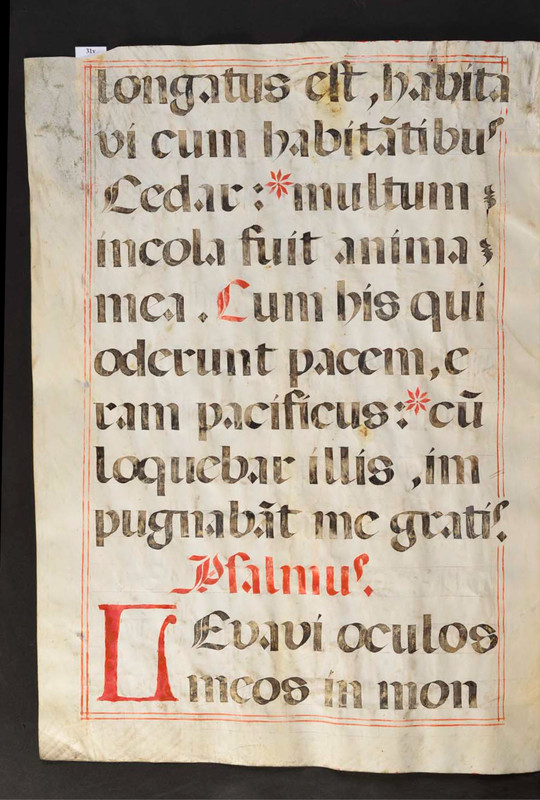 31v
longatus est, habita
vi cum habitãtibus
Cedar : * multum
incola fuit anima
mea . Cum his qui
oderunt pacem, e
ram pacificus : * cũ
loquebar illis , im
pugnabãt me gratis.
Psalmus.
LEvavi oculos
meos in mon